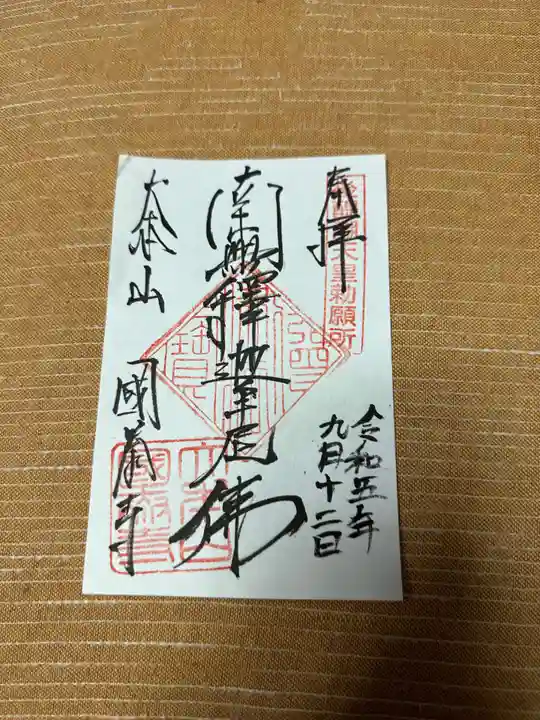 奉拝
後醍醐天皇勅願所
令和五年
九月十二日
南無釋迦牟尼佛
大本山 國泰寺